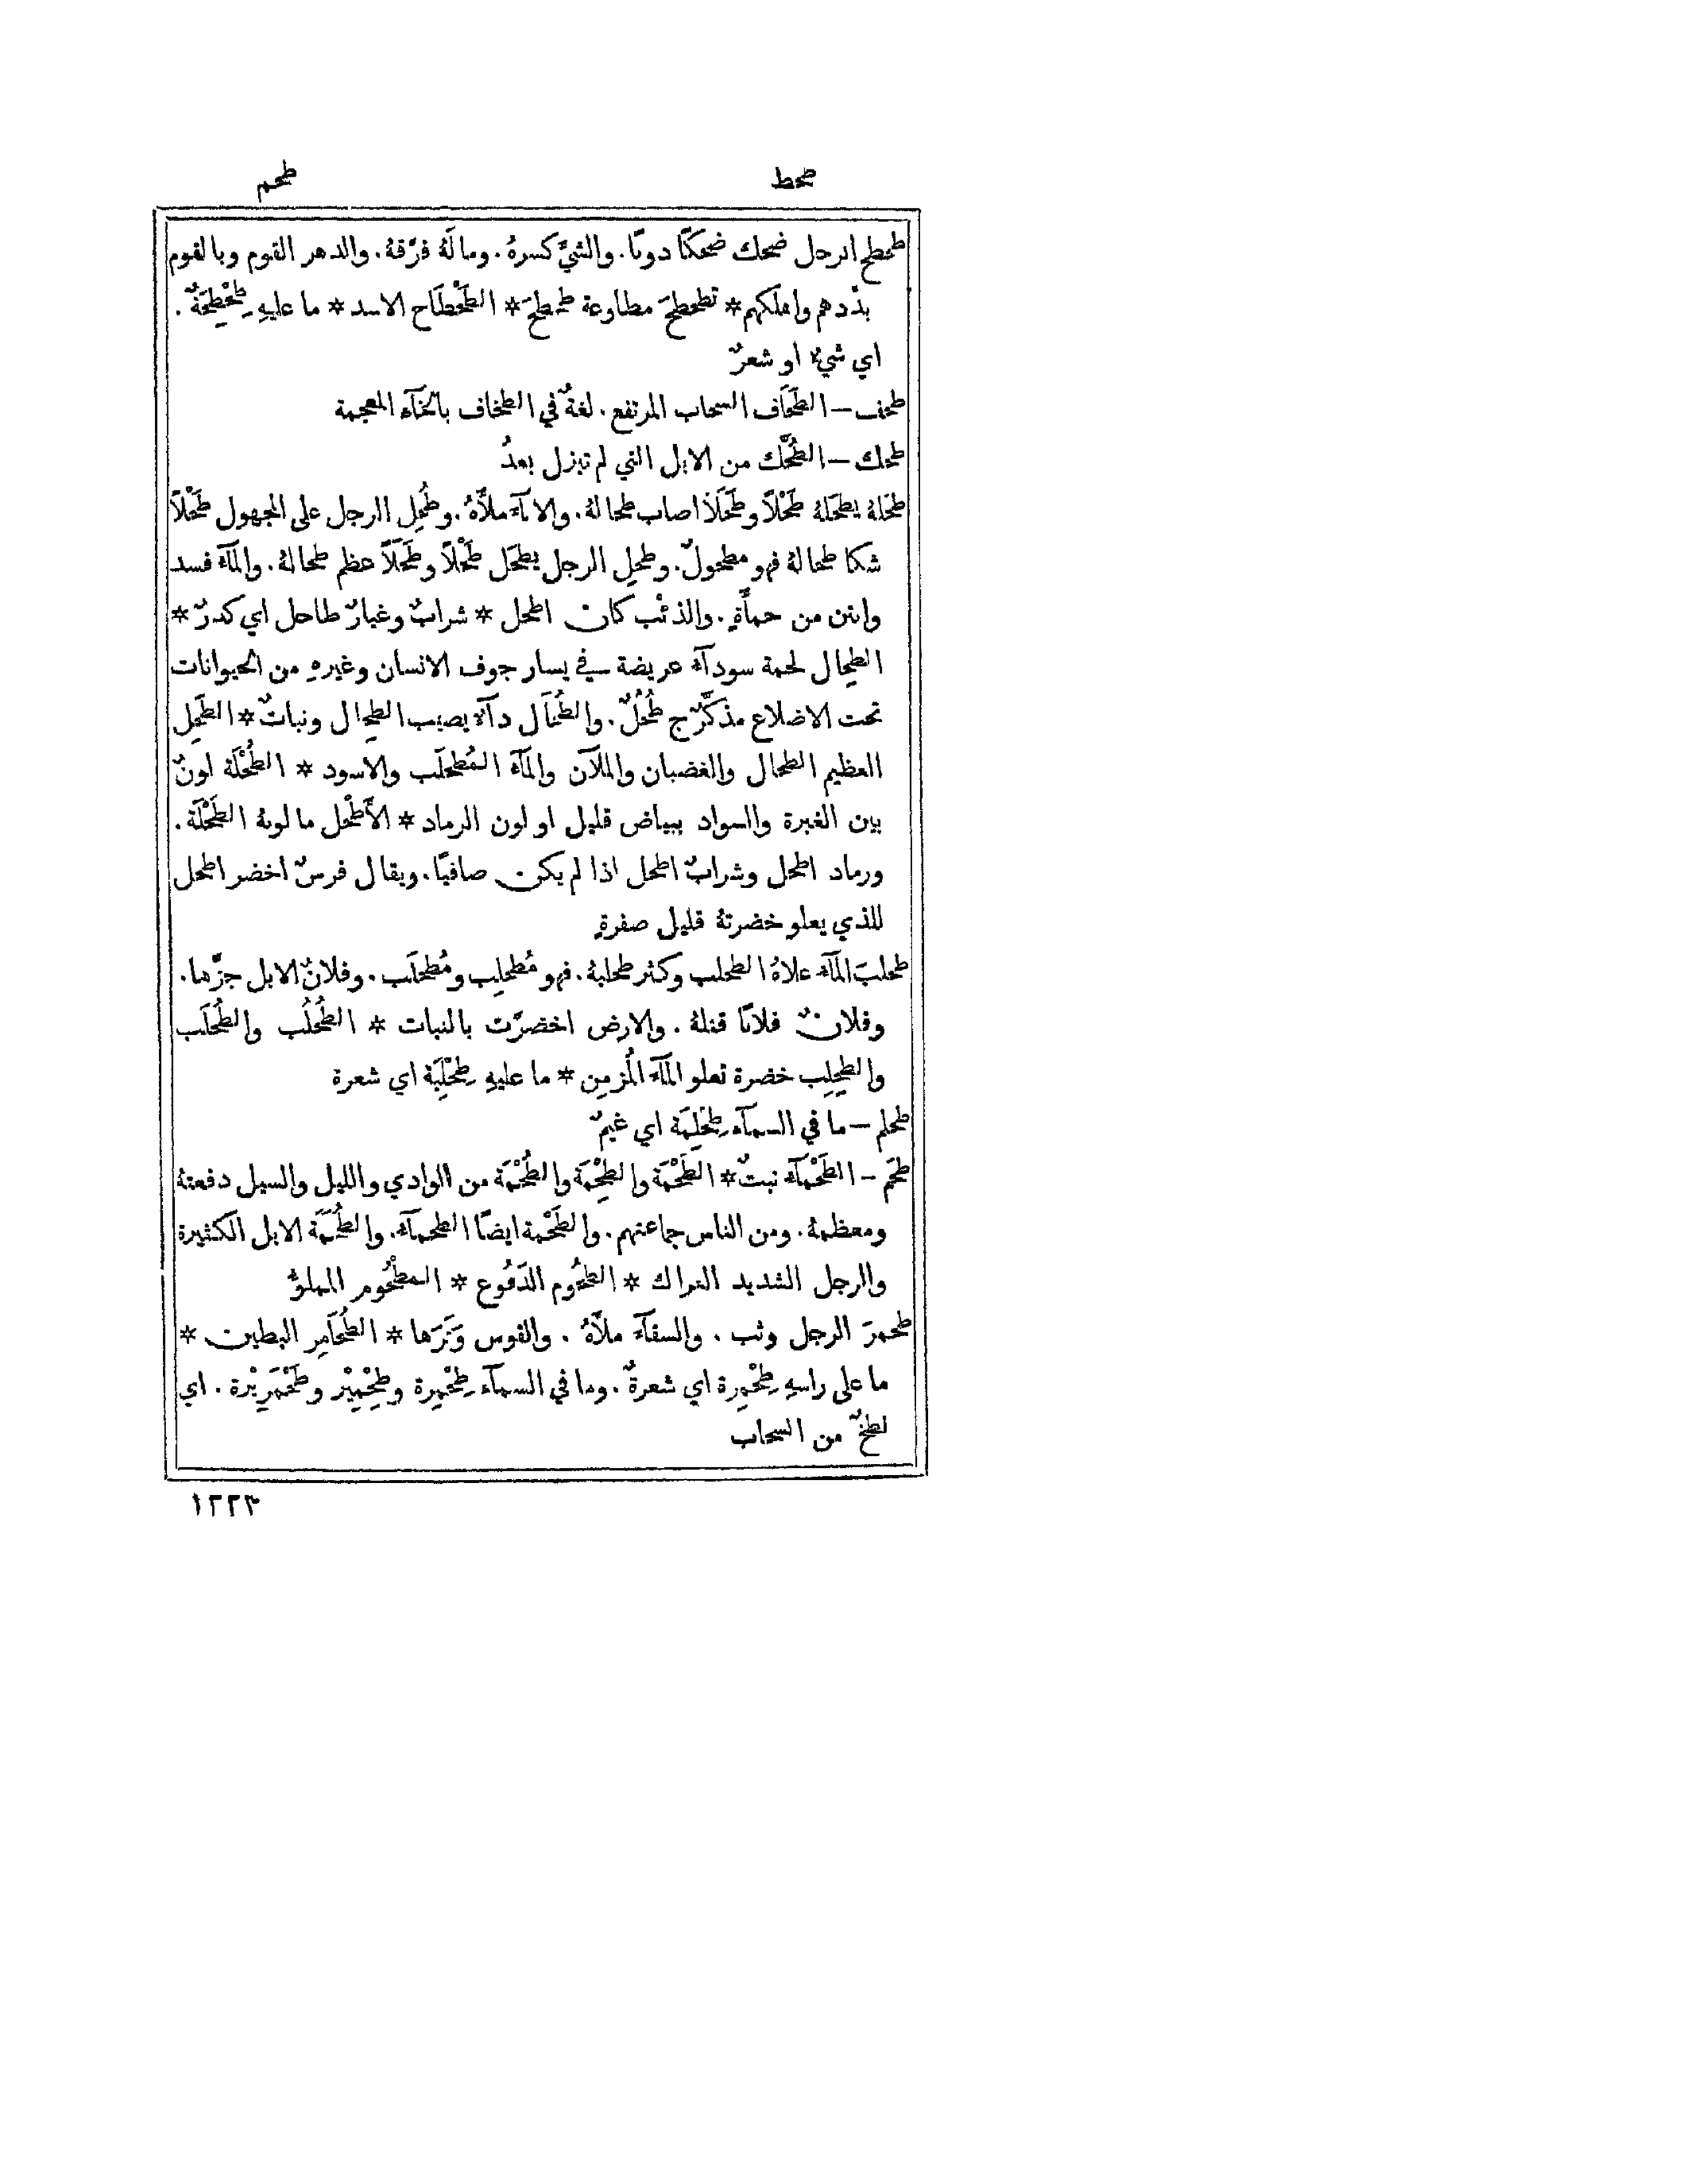 طحط
طحم
طحطح الرجل ضحك ضحكًا دونًا. والشيَّ كسرهُ. ومالَهُ فرَّقهُ. والدهر القوم وبالقوم
بدَّدهم واهلكهم * تطحطحَ مطاوعة طحطحَ * الطَحْطَاح الاسد * ما عليهِ طِحْطِحَةٌ.
اي شيءٌ او شعرٌ
طحف – الطَحَاف السحاب المرتفع. لغةٌ في الطخاف بالخآء المعجمة
طحك – الطُحَّك من الابل التي لم تبزل بعدُ
طحَلهُ يطحَلهُ طَحْلاً وطَحَلاً اصاب طحالهُ. والانآءَ ملأَهُ. وطُحِل الرجل على المجهول طَحْلاً
شكا طحالهُ فهو مطحولٌ. وطحِل الرجل يطحَل طَحْلاً وطَحَلاً عظم طحالهُ. والمآءُ فسد
وانتن من حمأَةٍ. والذئْب كان اطحل * شرابٌ وغبارٌ طاحل اي كدرٌ *
الطِحال لحمة سودآءُ عريضة في يسار جوف الانسان وغيرهِ من الحيوانات
تحت الاضلاع مذكَّرٌ ج طُحُلٌ. والطُحَال دآءٌ يصيب الطِحال ونباتٌ * الطَحِل
العظيم الطحال والغضبان والملآن والمآءُ المُطحلَب والاسود * الطُحْلَة لونٌ
بين الغبرة والسواد ببياض قليل او لون الرماد * الأَطْحَل ما لونهُ الطُحْلَة.
ورماد اطحل وشرابٌ اطحل اذا لم يكن صافيًا. ويقال فرسٌ اخضر اطحل
للذي يعلو خضرتهُ قليل صفرةٍ
طحلبَ المآءُ علاهُ الطحلب وكثر طحلبهُ. فهو مُطحلِب ومُطحلَب. وفلانٌ الابل جزَّها.
وفلانٌ فلانًا قتلهُ. والارض اخضرَّت بالنبات * الطُحْلُب والطُحْلَب
والطِحْلِب خضرة تعلو المآءَ المُزمِن * ما عليهِ طِحْلِبَة اي شعرة
طحلم – ما في السمآءِ طِحْلِمَة اي غيمٌ
طحَم – الطَحْمَآءُ نبتٌ * الطَحْمَة والطِحْمَة والطُحْمَة من الوادي والليل والسيل دفعتهُ
ومعظمهُ. ومن الناس جماعتهم. والطَحْمة ايضًا الطحمآءُ. والطُحَمَة الابل الكثيرة
والرجل الشديد العراك * الطَحُوم الدَفُوع * المطْحُوم المملوُّ
طحمرَ الرجل وثب. والسقآءَ ملأَهُ. والقوس وَتَرَها * الطُحَامِر البطين *
ما على راسهِ طِحْمِرة اي شعرةٌ. وما في السمآءِ طِحْمِرة وطِحْمِيْر وطَحْمَرِيْرة. اي
لطخٌ من السحاب
١٢٢٣